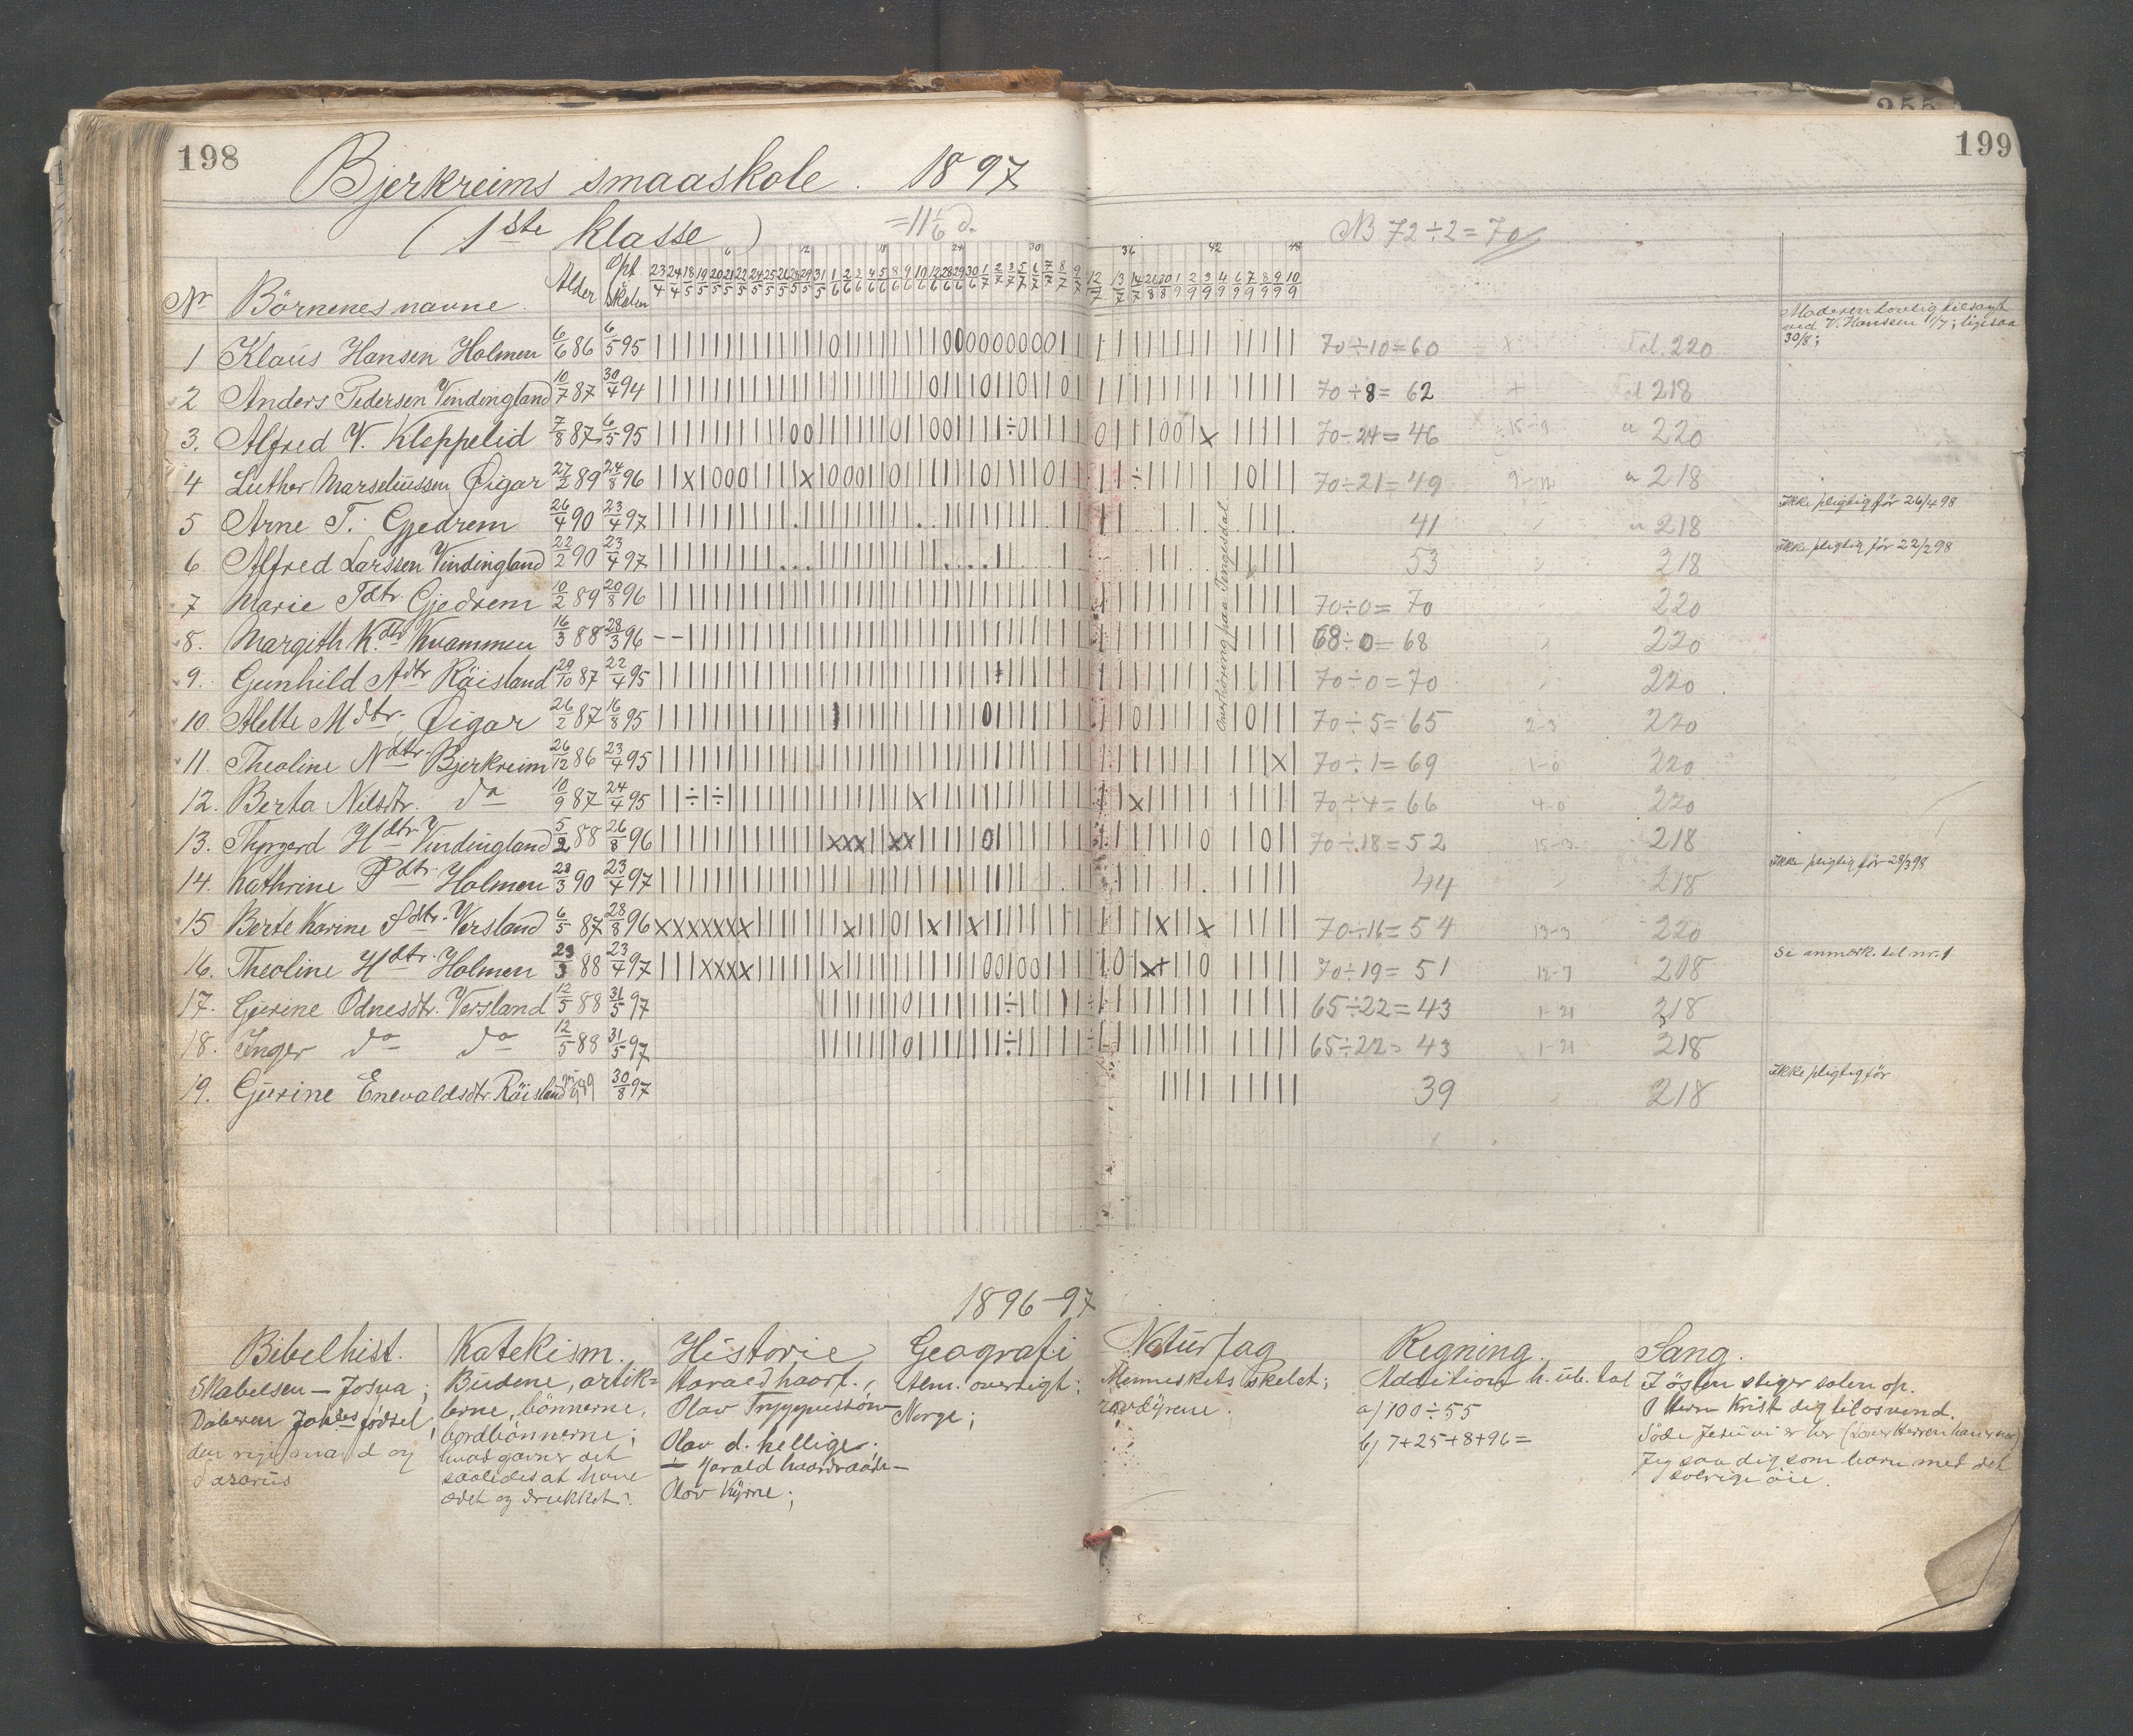 198
199
255
Bjerkreims smaaskole. 1897
(1ste klasse)
=11 1/6 d.
NB 72÷2=70
6 12 18 24 30 36 42 48
Nr Börnenes navne. Alder Opt. i skolen 23/4 24/4 18/5 19/5 20/5 21/5 22/5 24/5 25/5 26/5 28/5 29/5 31/5 1/6 2/6 3/6 4/6 5/6 8/6 9/6 10/6 12/6 28/6 29/6 30/6 1/7 2/7 3/7 5/7 6/7 7/7 8/7 9/7 12/7 13/7 14/7 26/8 30/8 1/9 2/9 3/9 4/9 6/9 7/9 8/9 9/9 10/9
1 Klaus Hansen Holmen 6/6 86 6/5 95 70÷10=60 Fol. 220 Moderen lovlig tilsagt ved V. Hansen 1/7; ligesaa 30/8;
2 Anders Pedersen Vindingland 10/7 87 30/4 94 70÷8=62 Fol 218
3. Alfred V. Kleppelid 7/8 87 6/5 95 70÷24=46 " 220
4 Luther Marseliussen Øigar 27/2 89 24/8 96 70÷21=49 " 218
5 Arne T. Gjedrem 26/4 90 23/4 97 41 " 218 Ikke pligtig för 26/4 98
6 Alfred Larssen Vindingland 22/2 90 23/4 97 53 218 Ikke pligtig för 22/2 98
7 Marie Tdtr. Gjedrem 10/2 89 20/8 96 70÷0=70 220
8. Margith K.dtr Kvammen 16/3 88 28/3 96 68÷0=68 220
9. Gunhild Adtr Röisland 29/10 87 22/4 95 70÷0=70 220
10. Alette Mdtr. Øigar 26/2 87 16/8 95 70÷5=65 2-3 220
11. Theoline Ndtr. Bjerkreim 26/12 86 23/4 95 70÷1=69 1-0 220
12. Berta Nilsdtr. do 10/9 87 24/4 95 70÷4=66 4-0 220
13. Thorgerd Hdtr. Vindingland 5/2 88 26/8 96 70÷18=52 15-3 218
14. Kathrine Pdtr. Holmen 28/3 90 23/4 97 44 218 Ikke pligtig för 28/3 98
15 Berte Karine Sdtr. Versland 6/5 87 28/8 96 70÷16=54 13-3 220
16. Theoline Hdtr. Holmen 23/3 88 23/4 97 70÷19=51 12-7 218 Se anmerk. til nr. 1
17. Gurine Odnesdtr. Versland 12/5 88 31/5 97 65÷22=43 1-21 218
18. Inger do do 12/5 88 31/5 97 65÷22=43 1-21 218
19. Gurine Enevaldsdtr. Röisland 30/8 97 39 218 Ikke pligtig för
Overhöring paa Tengesdal
1896-97
Bibelhist. Katekism. Historie Geografi Naturfag Regning. Sang.
Skabelsen – Josva;
Döberen Johs fødsel;
den rige mand og
Lasarus
Budene, artik=
lerne, bönnerne,
bordbönnerne;
hvad gavner det
saaledes at have
ædet og drukket?
Harald haarf.,
Olav Tryggvessön
Olav d. hellige.
– Harald haardraade –
Olav Kyrre;
Alm. oversigt;
Norge;
Menneskets skelet;
rovdyrene.
Addition h. ub. tal
a) 100÷55
b) 7+25+8+96=
I östen stiger solen op.
O Herre Krist dig til os vend.
Söde Jesu vi er her (Lover Herren han er nær)
Jeg saa dig som barn med det
solrige öie.